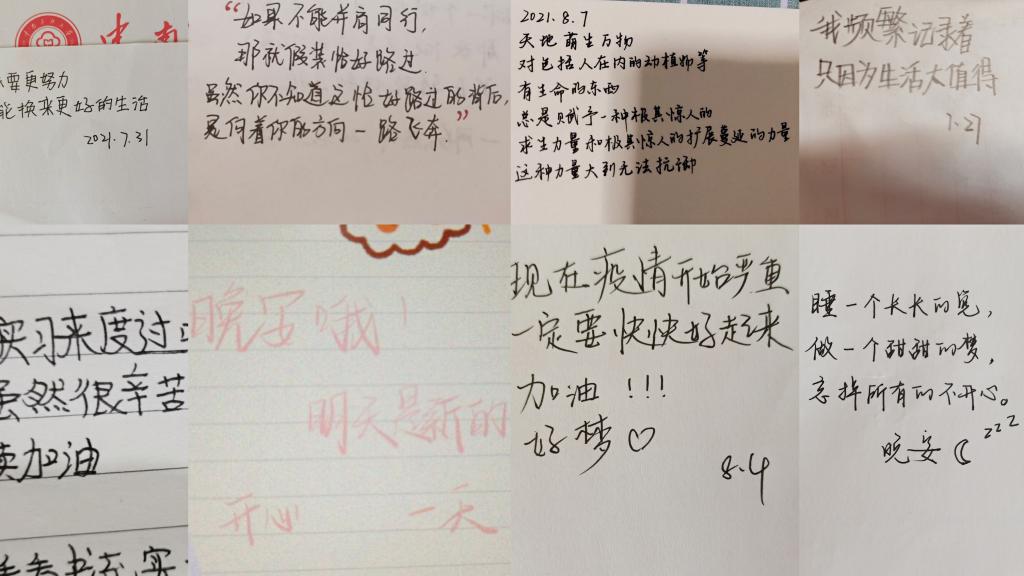 要更努力
能换来更好的生活
2021.7.31
“如果不能并肩同行，
那就假装恰好路过
虽然你不知道这恰好路过的背后，
是向着你的方向一路飞奔.”
2021.8.7
天地萌生万物
对包括人在内的动植物等
有生命的东西
总是赋予一种极其惊人的
求生力量和极其惊人的扩展蔓延的力量
这种力量大到无法抗御
我频繁记录着
只因为生活太值得
1.27
实习来度过
虽然很辛苦
续加油
晚安哦！
明天是新的
开心 一天
现在疫情开始严重
一定要快快好起来
加油！！！
好梦♡
8.4
睡一个长长的觉，
做一个甜甜的梦，
忘掉所有的不开心。
晚安 zzz